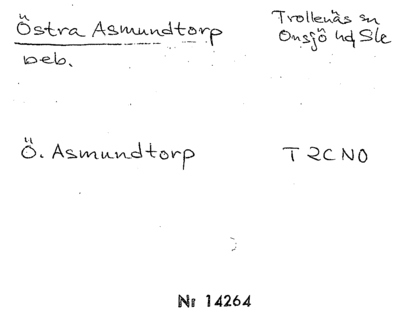 Östra Asmundtorp
Trollenäs sn
Onsjö hd Ske
beb.
Ö. Asmundtorp
T 2C NO
Nr 14264